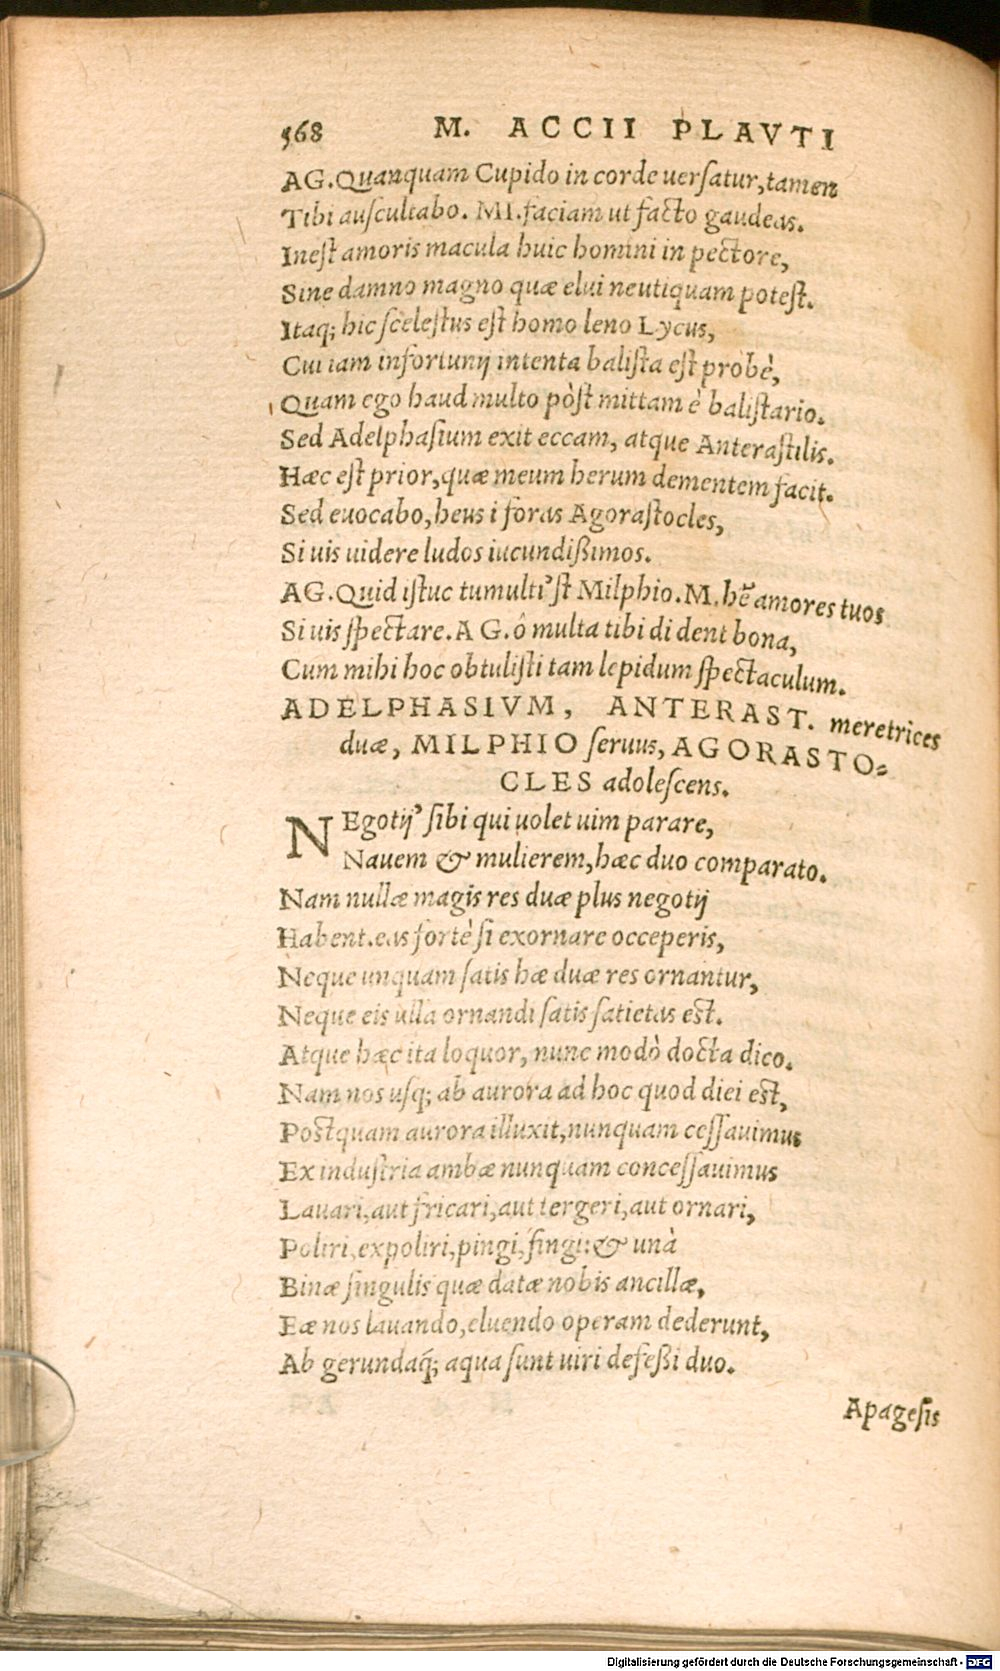 568 M. ACCII PLAVTI
AG. Quanquam Cupido in corde uerſatur, tamen
Tibi auſcultabo. MI. faciam ut facto gaudeas.
Ineſt amoris macula huic homini in pectore,
Sine damno magno quæ elui neutiquam poteſt.
Itaq; hic ſceleſtus eſt homo leno Lycus,
Cui iam infortunij intenta baliſta eſt probè,
Quam ego haud multo pòſt mittam è baliſtario.
Sed Adelphaſium exit eccam, atque Anteraſtilis.
Hæc eſt prior, quæ meum herum dementem facit.
Sed euocabo, heus i foras Agoraſtocles,
Si uis uidere ludos iucundißimos.
AG. Quid iſtuc tumulti'ſt Milphio. M. hẽ amores tuos
Si uis ſpectare. AG. ô multa tibi di dent bona,
Cum mihi hoc obtuliſti tam lepidum ſpectaculum.
ADELPHASIVM, ANTERAST. meretrices
duæ, MILPHIO ſeruus, AGORASTO-
CLES adoleſcens.
NEgotij' ſibi qui uolet uim parare,
Nauem & mulierem, hæc duo comparato.
Nam nullæ magis res duæ plus negotij
Habent. eas fortè ſi exornare occeperis,
Neque unquam ſatis hæ duæ res ornantur,
Neque eis ulla ornandi ſatis ſatietas eſt.
Atque hæc ita loquor, nunc modò docta dico.
Nam nos uſq; ab aurora ad hoc quod diei eſt,
Poſtquam aurora illuxit, nunquam ceſſauimus
Ex induſtria ambæ nunquam conceſſauimus
Lauari, aut fricari, aut tergeri, aut ornari,
Poliri, expoliri, pingi, fingi: & unà
Binæ ſingulis quæ datæ nobis ancillæ,
Eæ nos lauando, eluendo operam dederunt,
Ab gerundaq́; aqua ſunt uiri defeßi duo.
Apageſis
Digitalisierung gefördert durch die Deutsche Forschungsgemeinschaft - DFG